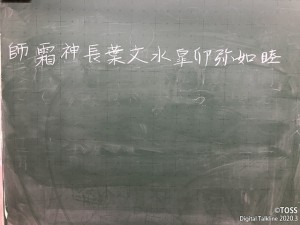 師霜神長葉文水皐卯弥如睦
©TOSS
Digital Talkline 2020.3